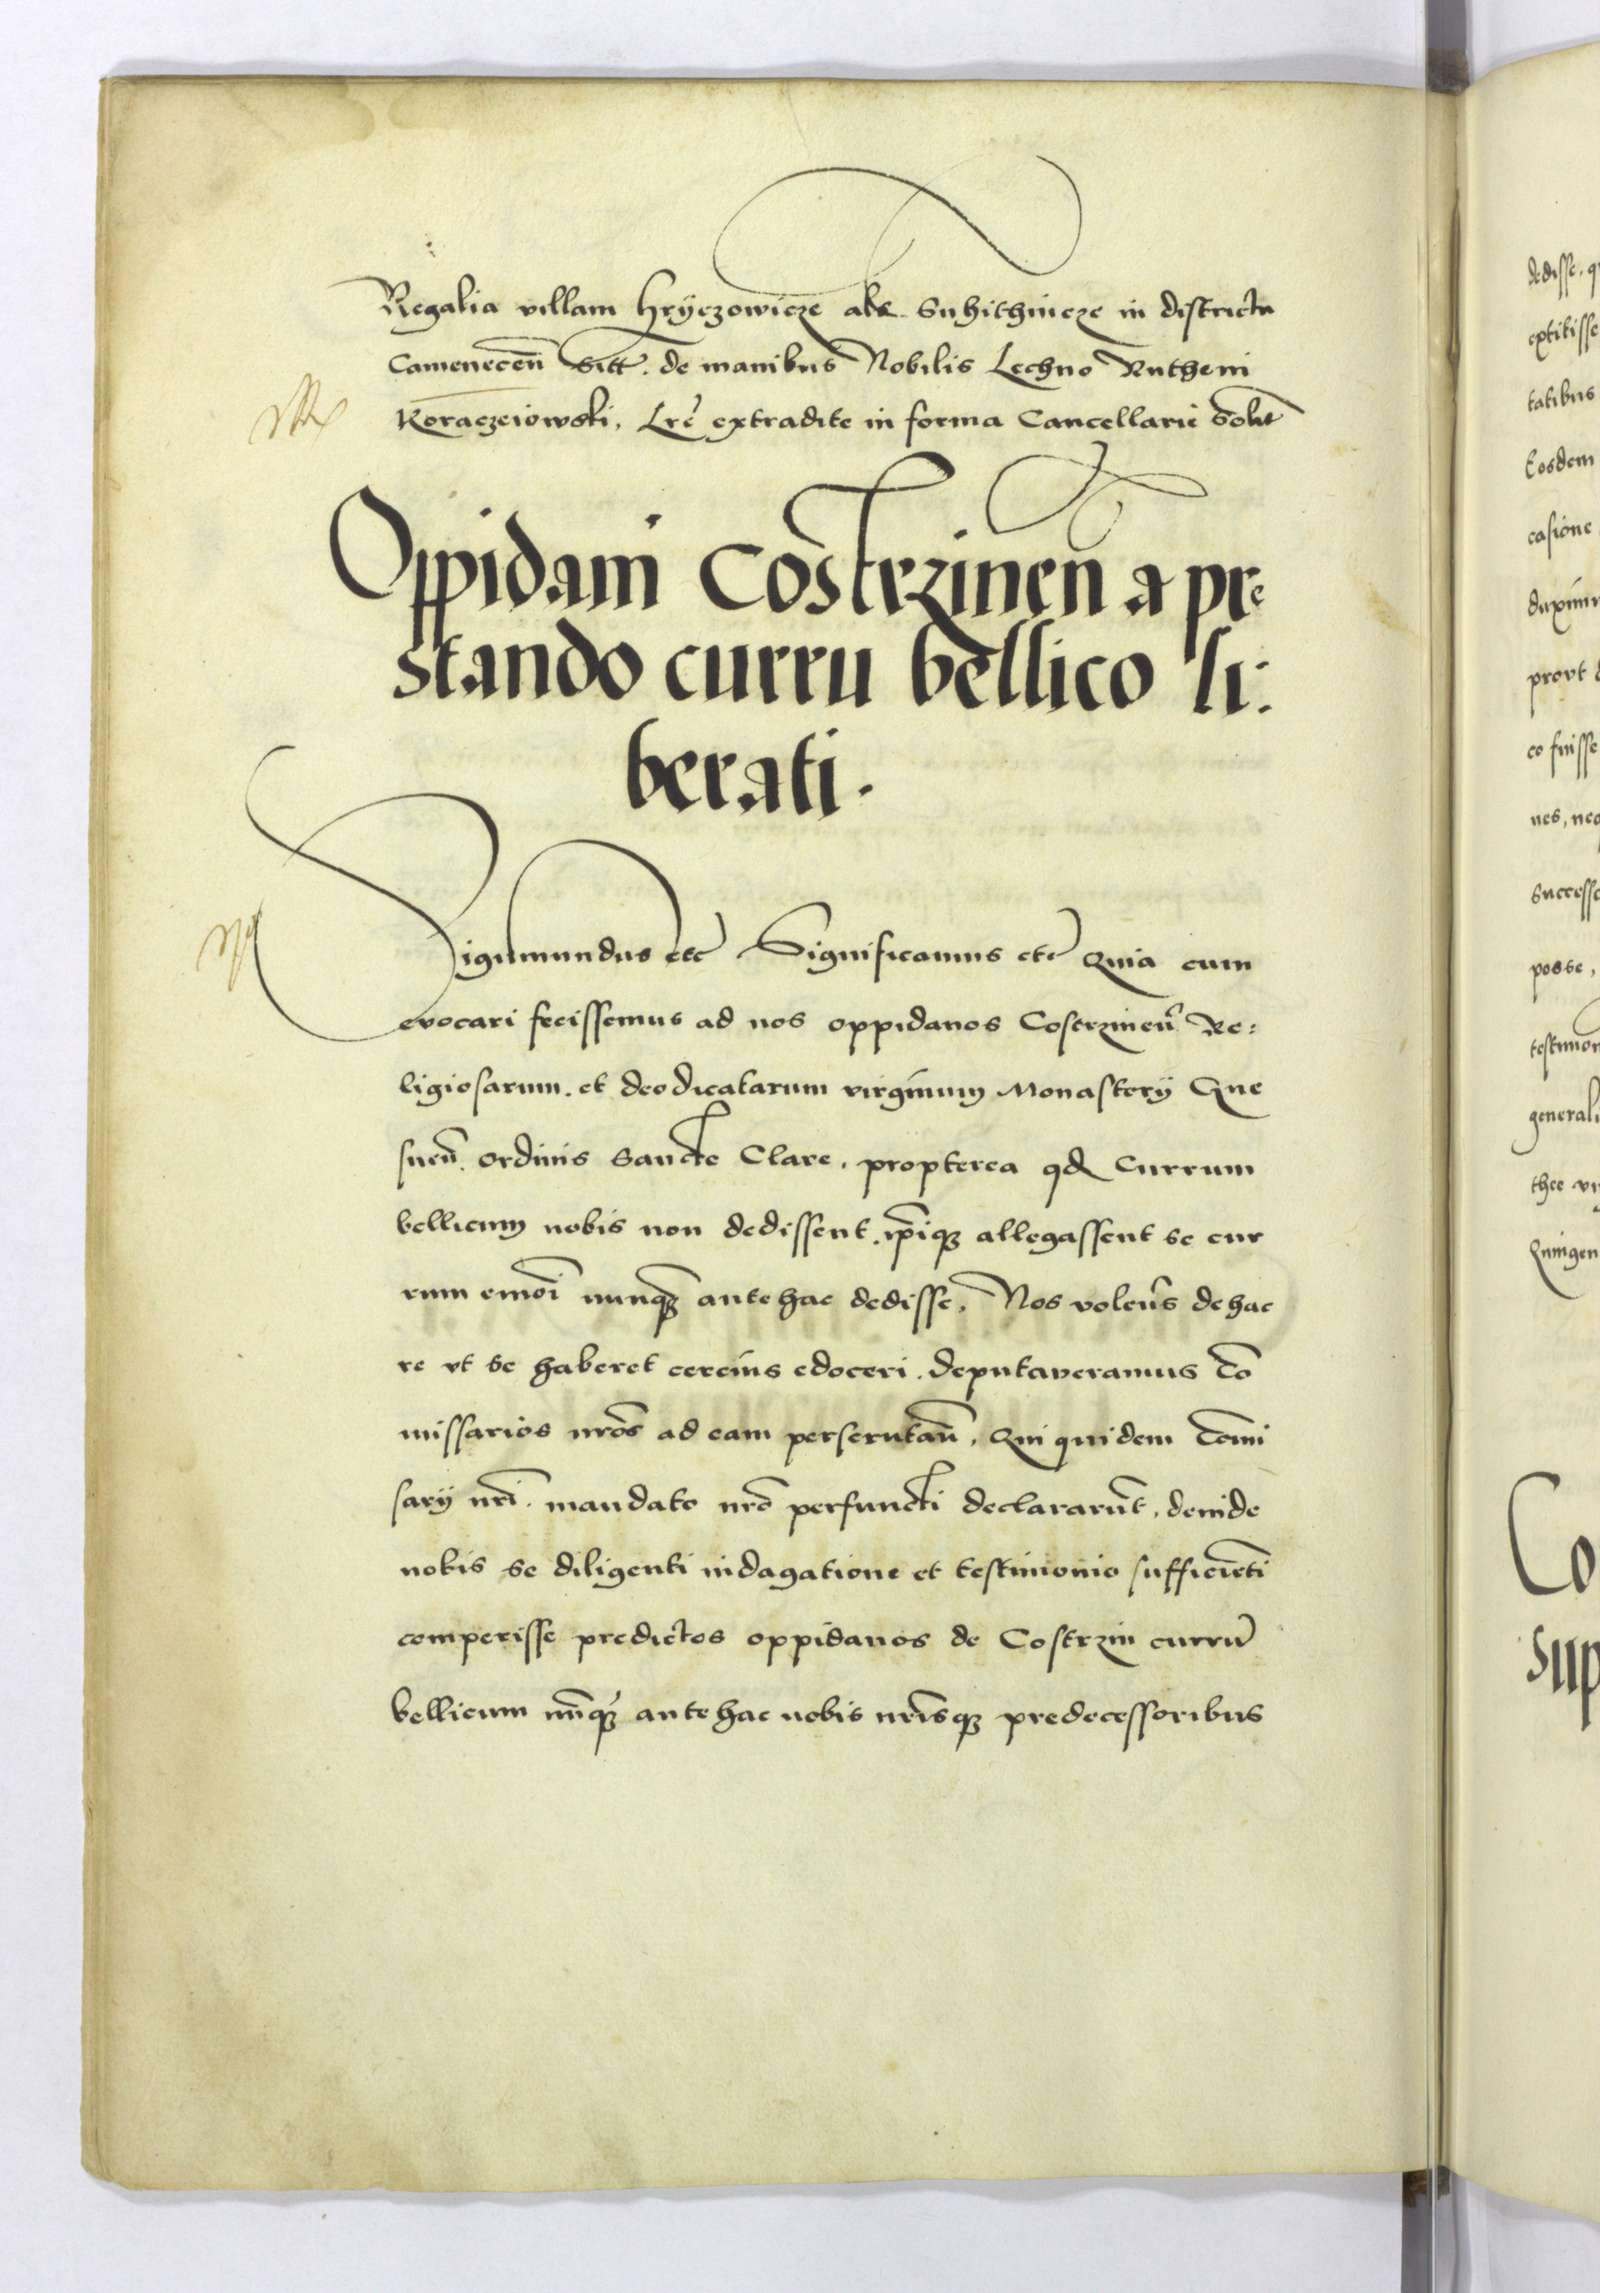 Regalia villam Hryczowicze als Suhithincze in districtu
Camenecen̄ Sitt. de manibus Nobilis Lechno Rutheni
Koraczeiowski, Lrē extradite in forma Cancellarie Solit̄
Oppidani Costrzinen̄ a pre
stando curru bellico li:
berati.
Sigismundus etc Significamus etc Quia cum
evocari fecissemus ad nos oppidanos Costrzineñ Re:
ligiosarum. et deo dicatarum virginum Monastery Gne
sneñ. ordinis Sancte Clare, propterea qd currum
bellicum nobis non dedissent. ip̄iqz allegassent se cur
rum emōi nunqz̄ ante hac dedisse, Nos volen̄s de hac
re vt se haberet cercius edoceri. deputaveramus Cō
missarios nrōs ad eam perscrutan̄, Qui quidem Com̄i
sarij nrī. mandato nrō perfuncti declararūt, deinde
nobis se diligenti indagatione et testimonio sufficiēti
comperisse predictos oppidanos de Costrzin currū
bellicum nūqz̄ ante hac nobis nrīsqz predecessoribus
dedisse, q
extitisse
tatibus
Eosdem
casione
duxim
provt
co fuisse
nes, nec
Successo
posse,
testimon
generali
thee
Quingen
Co
sup